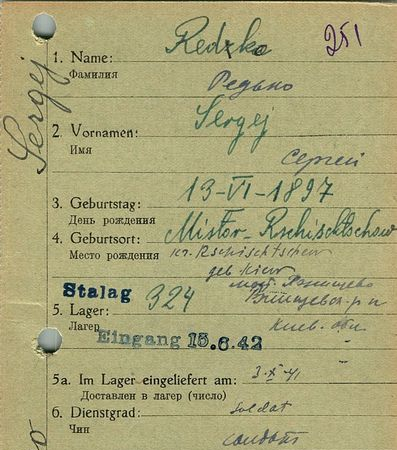 Sergej
Redzko 251
1. Name:
Фамилия Редько
2. Vornamen: Sergej
Имя Сергей
3. Geburtstag: 13-VI-1897
День рождения
4. Geburtsort: Mistor-Rschischtschew
Место рождения kr. Rschischtschew
geb Kiew
Stalag 324
5. Lager: Киев. обл
Лагер
Eingang 15.6.42
5a. Im Lager eingeliefert am: 3-XI-41
Доставлен в лагер (число)
6. Dienstgrad: Soldat
Чин солдат